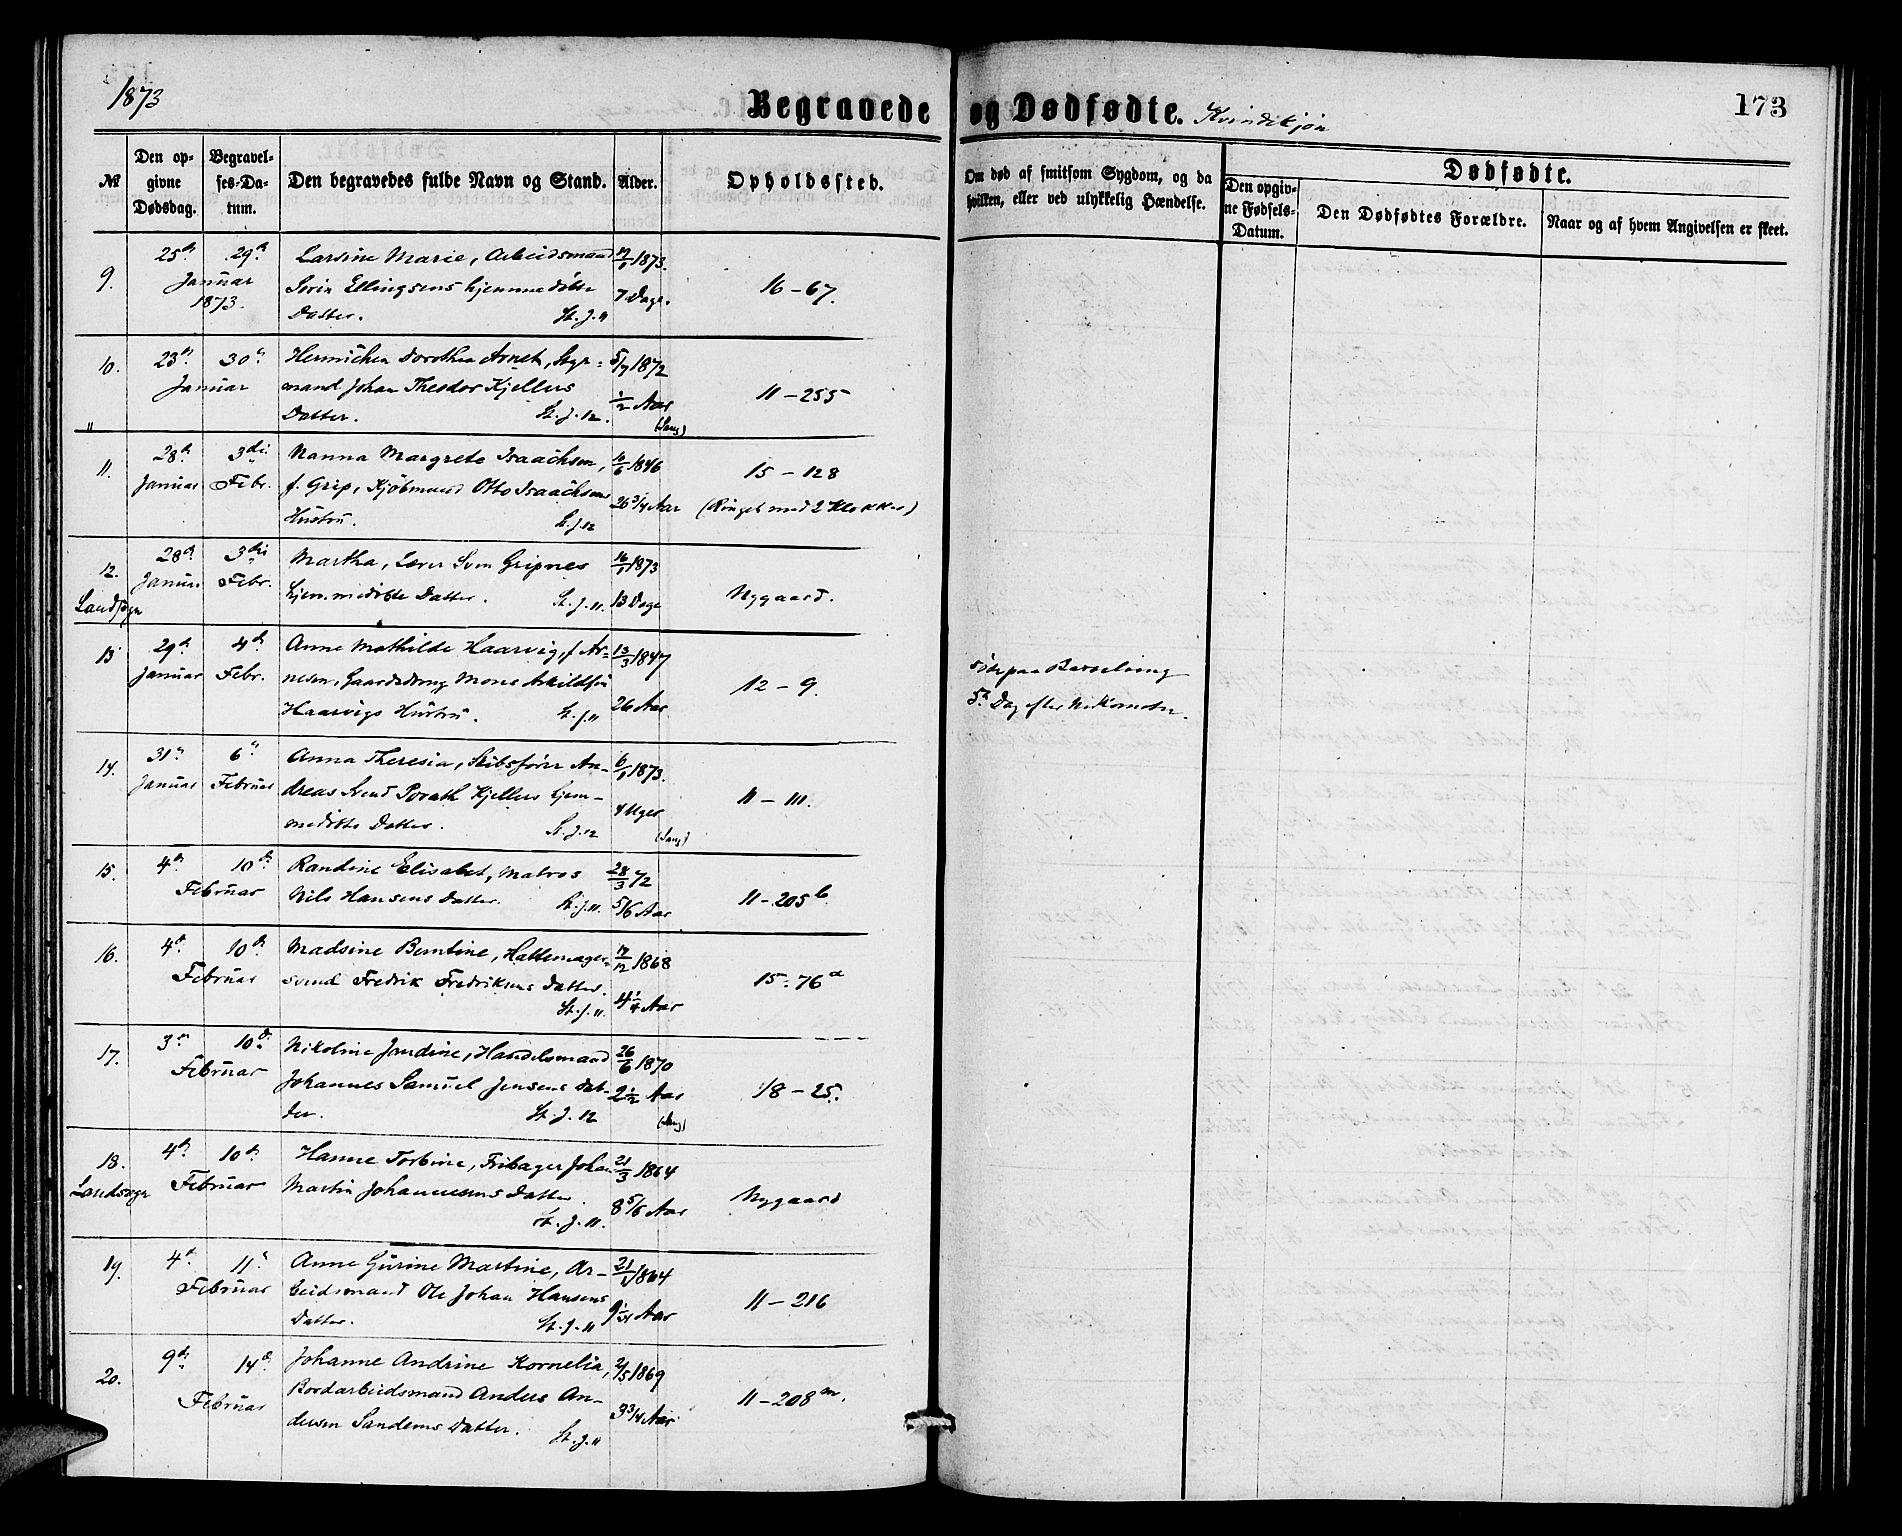 1873
Begravede og Dødfødte. Kvindekjøn
173
№ Den opgivne Dødsdag. Begravelses-Datum. Den begravedes fulde Navn og Stand. Alder. Opholdssted. Om død af smitsom Sygdom, og da hvilken, eller ved ulykkelig Hændelse.
Dødfødte.
Den opgivne Fødsels-Datum. Den Dødfødtes Forældre. Naar og af hvem Angivelsen er skeet.
9. 25de 29de Larsine Marie, Arbeidsmand
Januar 1873.
Sørin Ellingsens hjemmedöbte
Datter. St. J. 11
1873.
7 Dage.
16 – 67.
10. 23de 30te
Januar
Dorothea Agnet, Styr-
mand Johan Theodor Kjellers
Datter. St. J. 12.
5/7 1872
1/2 Aar
(Sang)
11 – 255
11. 28de 3die
Januar Febr.
Nanna Margrete Isaachsen,
f. Grip, Kjöbmand Otto Isaachsens
Hustru. St. J. 12
1846
26 3/4 Aar
15 – 128
(Ringet med 2 Klokker)
12. 28de 3die
Landsogn
Januar Febr.
Martha, Lærer Sven Gripnes
hjemmedöbte Datter. St. J. 11.
16/1 1873
13 Dage
Nygaard.
13 29de 4de
Januar Febr.
Anne Mathilde Haarvig, f. Ar-
nesen, Gaardsdreng Mons Askildsen
Haarvigs Hustru. St. J. 11
13/3 1847
26 Aar
12 – 9.
paa Barselseng
5te Dag efter Nedkomsten.
14. 31te 6te
Januar Februar
Anna Theresia, Skibsfører An-
dreas Svend Porath Kjellers hjem-
medöbte Datter. St. J. 12
6/1 1873.
4 Uger
(Sang)
11 – 111.
15. 4de 10de
Februar
Randine Elisabet, Matros
Nils Hansens Datter. St. J. 11.
28/3 72
5/6 Aar
11 – 205 b.
16. 4de 10de
Februar
Madsine Berntine, Hattemager-
svend Fredrik Fredriksens Datter.
St. J. 11.
12 1868
4 1/4 Aar
15 – 76 a
17. 3die 10de
Februar
Nikoline Jandine, Handelsmand
Johannes Samuel Jensens Dat-
ter. St. J. 12
26/6 1870
2 1/2 Aar
(Sang)
18 – 25.
18. 4de 10de
Landsogn
Februar
Hanne Torbine, Fribager Johan
Martin Johannesens Datter.
St. J. 11.
21/3 1864
8 5/6 Aar
Nygaard
19. 4de 11te
Februar
Anne Gurine Martine, Ar-
beidsmand Ole Johan Hansens
Datter. St. J. 11
21/1 1864
9 1/24 Aar
11 – 216
20. 9de 14de
Februar
Johanne Andrine Kornelia,
Bordarbeidsmand Anders An-
dersen Sandems Datter. St. J. 11
2/5 1869
3 3/4 Aar
11 – 208 m.